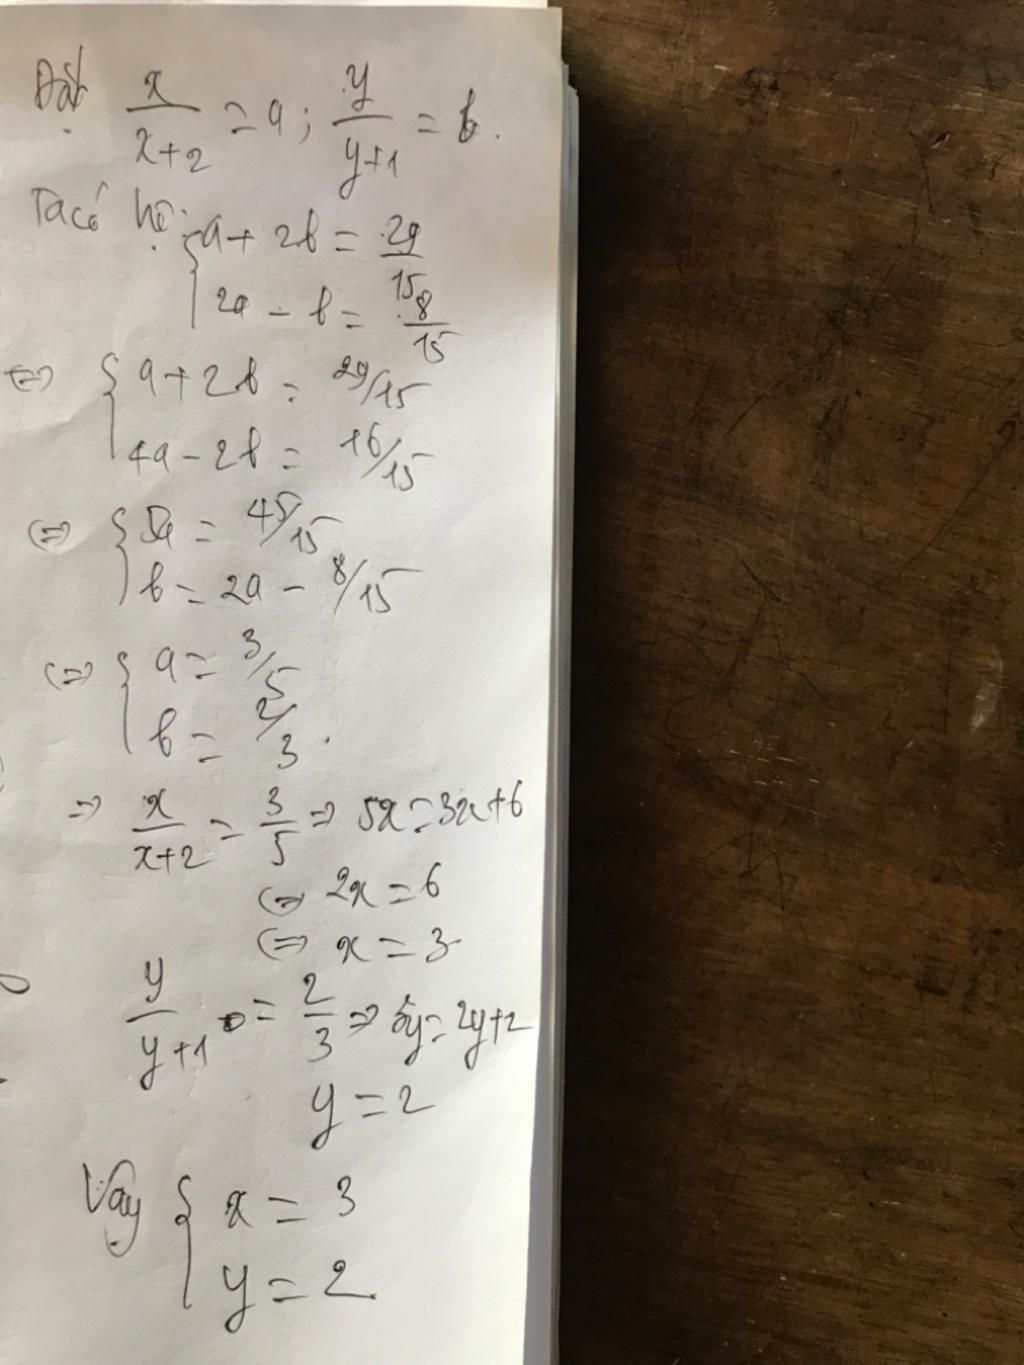 Đặt x/(x+2) = a; y/(y+1) = b.
Ta có hệ: { a + 2b = 29/15
2a - b = 8/15
<=> { a + 2b = 29/15
4a - 2b = 16/15
<=> { 5a = 45/15
b = 2a - 8/15
<=> { a = 3/5
b = 2/3.
=> x/(x+2) = 3/5 => 5x = 3x+6
<=> 2x = 6
<=> x = 3
y/(y+1) = 2/3 => 3y = 2y+2
y = 2
Vậy { x = 3
y = 2